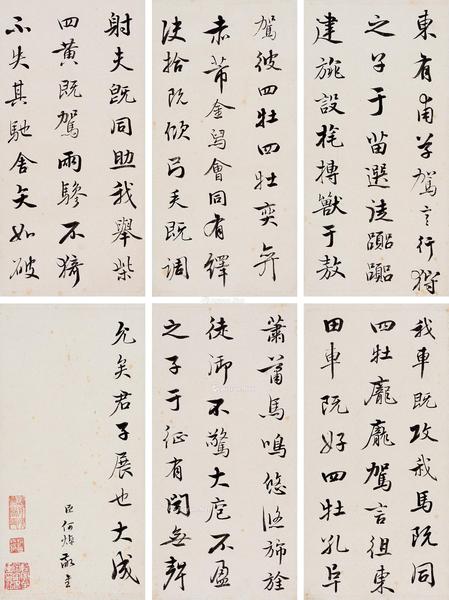 我車既攻我馬既同
四牡龐龐駕言徂東
田車既好四牡孔阜
東有甫草駕言行狩
之子于苗選徒囂囂
建旐設旄搏獸于敖
駕彼四牡四牡奕奕
赤芾金舄會同有繹
決拾既佽弓矢既調
射夫既同助我舉柴
四黃既駕兩驂不猗
不失其馳舍矢如破
蕭蕭馬鳴悠悠旆旌
徒御不驚大庖不盈
之子于征有聞無聲
允矣君子展也大成
臣何焯敬書